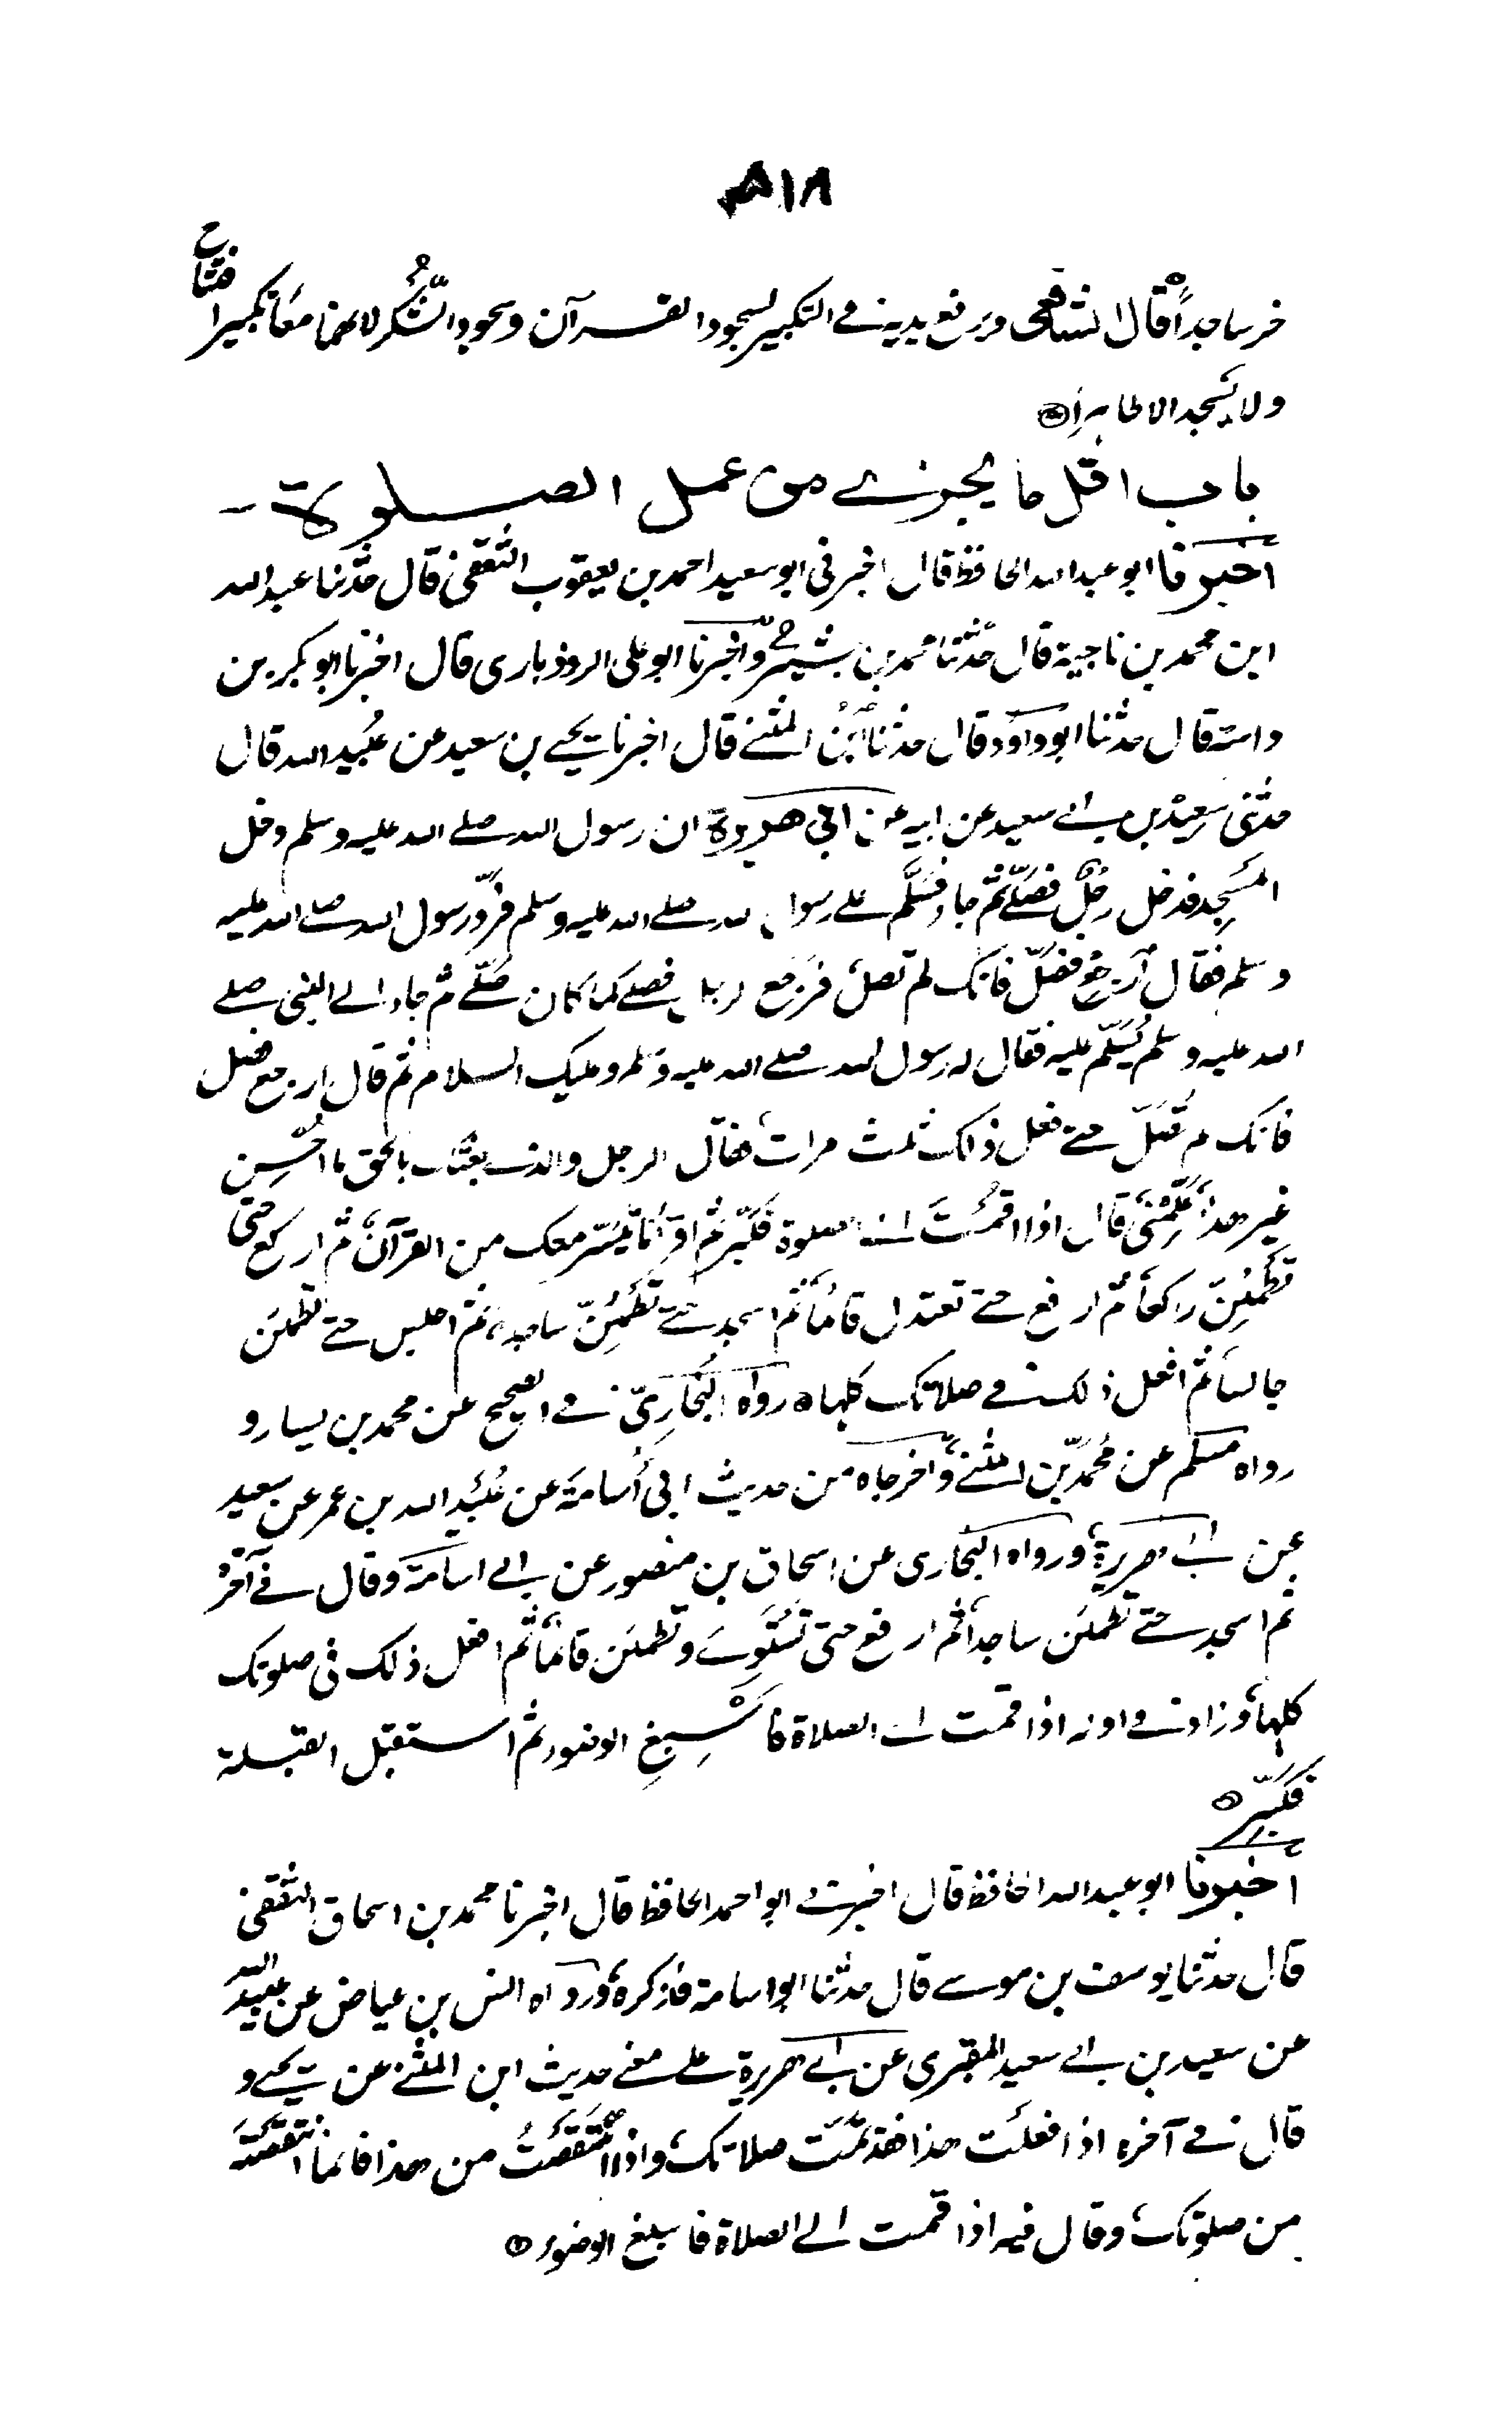 ٥١٨
خر ساجداً قال الشافعى ويرفع يديه فى التكبير لسجود القرآن وسجود الشُّكر لانهما معًا تكبير افتتاح
ولا يَسجد الا طاهراً
باب اقل ما يجزى من عمل الصلوة
اخبرنا ابو عبد الله الحافظ قال اخبرنى ابو سعيد احمد بن يعقوب الثقفى قال حدثنا عبد الله
ابن محمد بن ناجية قال حدثنا محمد بن ح واخبرنا ابو على الروذبارى قال اخبرنا ابو بكر بن
داسة قال حدثنا ابو داود قال حدثنا ابن المثنى قال اخبرنا يحيى بن سعيد عن عُبيد الله قال
حدثنى سعيد بن ابى سعيد عن ابيه عن ابى هريرة ان رسول الله صلى الله عليه وسلم دخل
المسجد فدخل رجل فصلّى ثم جاء فسلَّم على رسول الله صلى الله عليه وسلم فردّ رسول الله صلى الله عليه
وسلم فقال ارجع فصلّ فانك لم تصل فرجع الرجل فصلى كما كان صلّى ثم جاء الى النبى صلى
الله عليه وسلم يُسَلّم عليه فقال له رسول الله صلى الله عليه وسلم وعليك السلام ثم قال ارجع فصل
فانك لم تُصَلّ حتى فعل ذلك ثلث مرات، فقال الرجل والذى بعثك بالحق ما احسن
غير هذا، عَلّمنى، قال اذا قمت الى الصلوة فكَبّر ثم اقرأ ما تيسّر معك من القرآن، ثم اركع حتى
تَطْمَئِنّ راكعاً ثم ارفع حتى تعتدل قائماً ثم اسجد حتى تَطْمَئِنّ ساجدا، ثم اجلس حتى تطمئن
جالسا ثم افعل ذلك فى صلاتك كلها ٥ رواه البخارىّ فى الصحيح عن محمد بن يسار و
رواه مسلم عن مُحمّد بن المثنى، واخرجاه من حديث ابى أسامة عن عُبَيد الله بن عمر عن سعيد
عن ابى هريرة، ورواه البخارى عن اسحاق بن منصور عن ابى اسامة وقال فى آخره
ثم اسجد حتى تطمئن ساجداً ثم ارفع حتى تَسْتَوِى وتطمئن قائماً ثم افعل ذلك فى صلوتك
كلها، وزاد فى اوله اذا قمت الى الصلاة فاَسْبِغِ الوضوء ثم استقبل القبلة
فكَبّر ٥
اخبرنا ابو عبد الله الحافظ قال اخبرنى ابو احمد الحافظ قال اخبرنا محمد بن اسحاق الثقفى
قال حدثنا يوسف بن موسى قال حدثنا ابو اسامة فذكره، ورواه انس بن عياض عن عبيد الله
عن سعيد بن ابى سعيد المقبرى عن ابى هريرة على معنى حديث ابن المثنى عن يحيى و
قال فى آخره اذا فعلت هذا فقد تمّت صلاتك، واذا انتقصت من هذا فانما انتقصته
من صلوتك، وقال فيه اذا قمت الى الصلاة فاسبغ الوضوء ٥